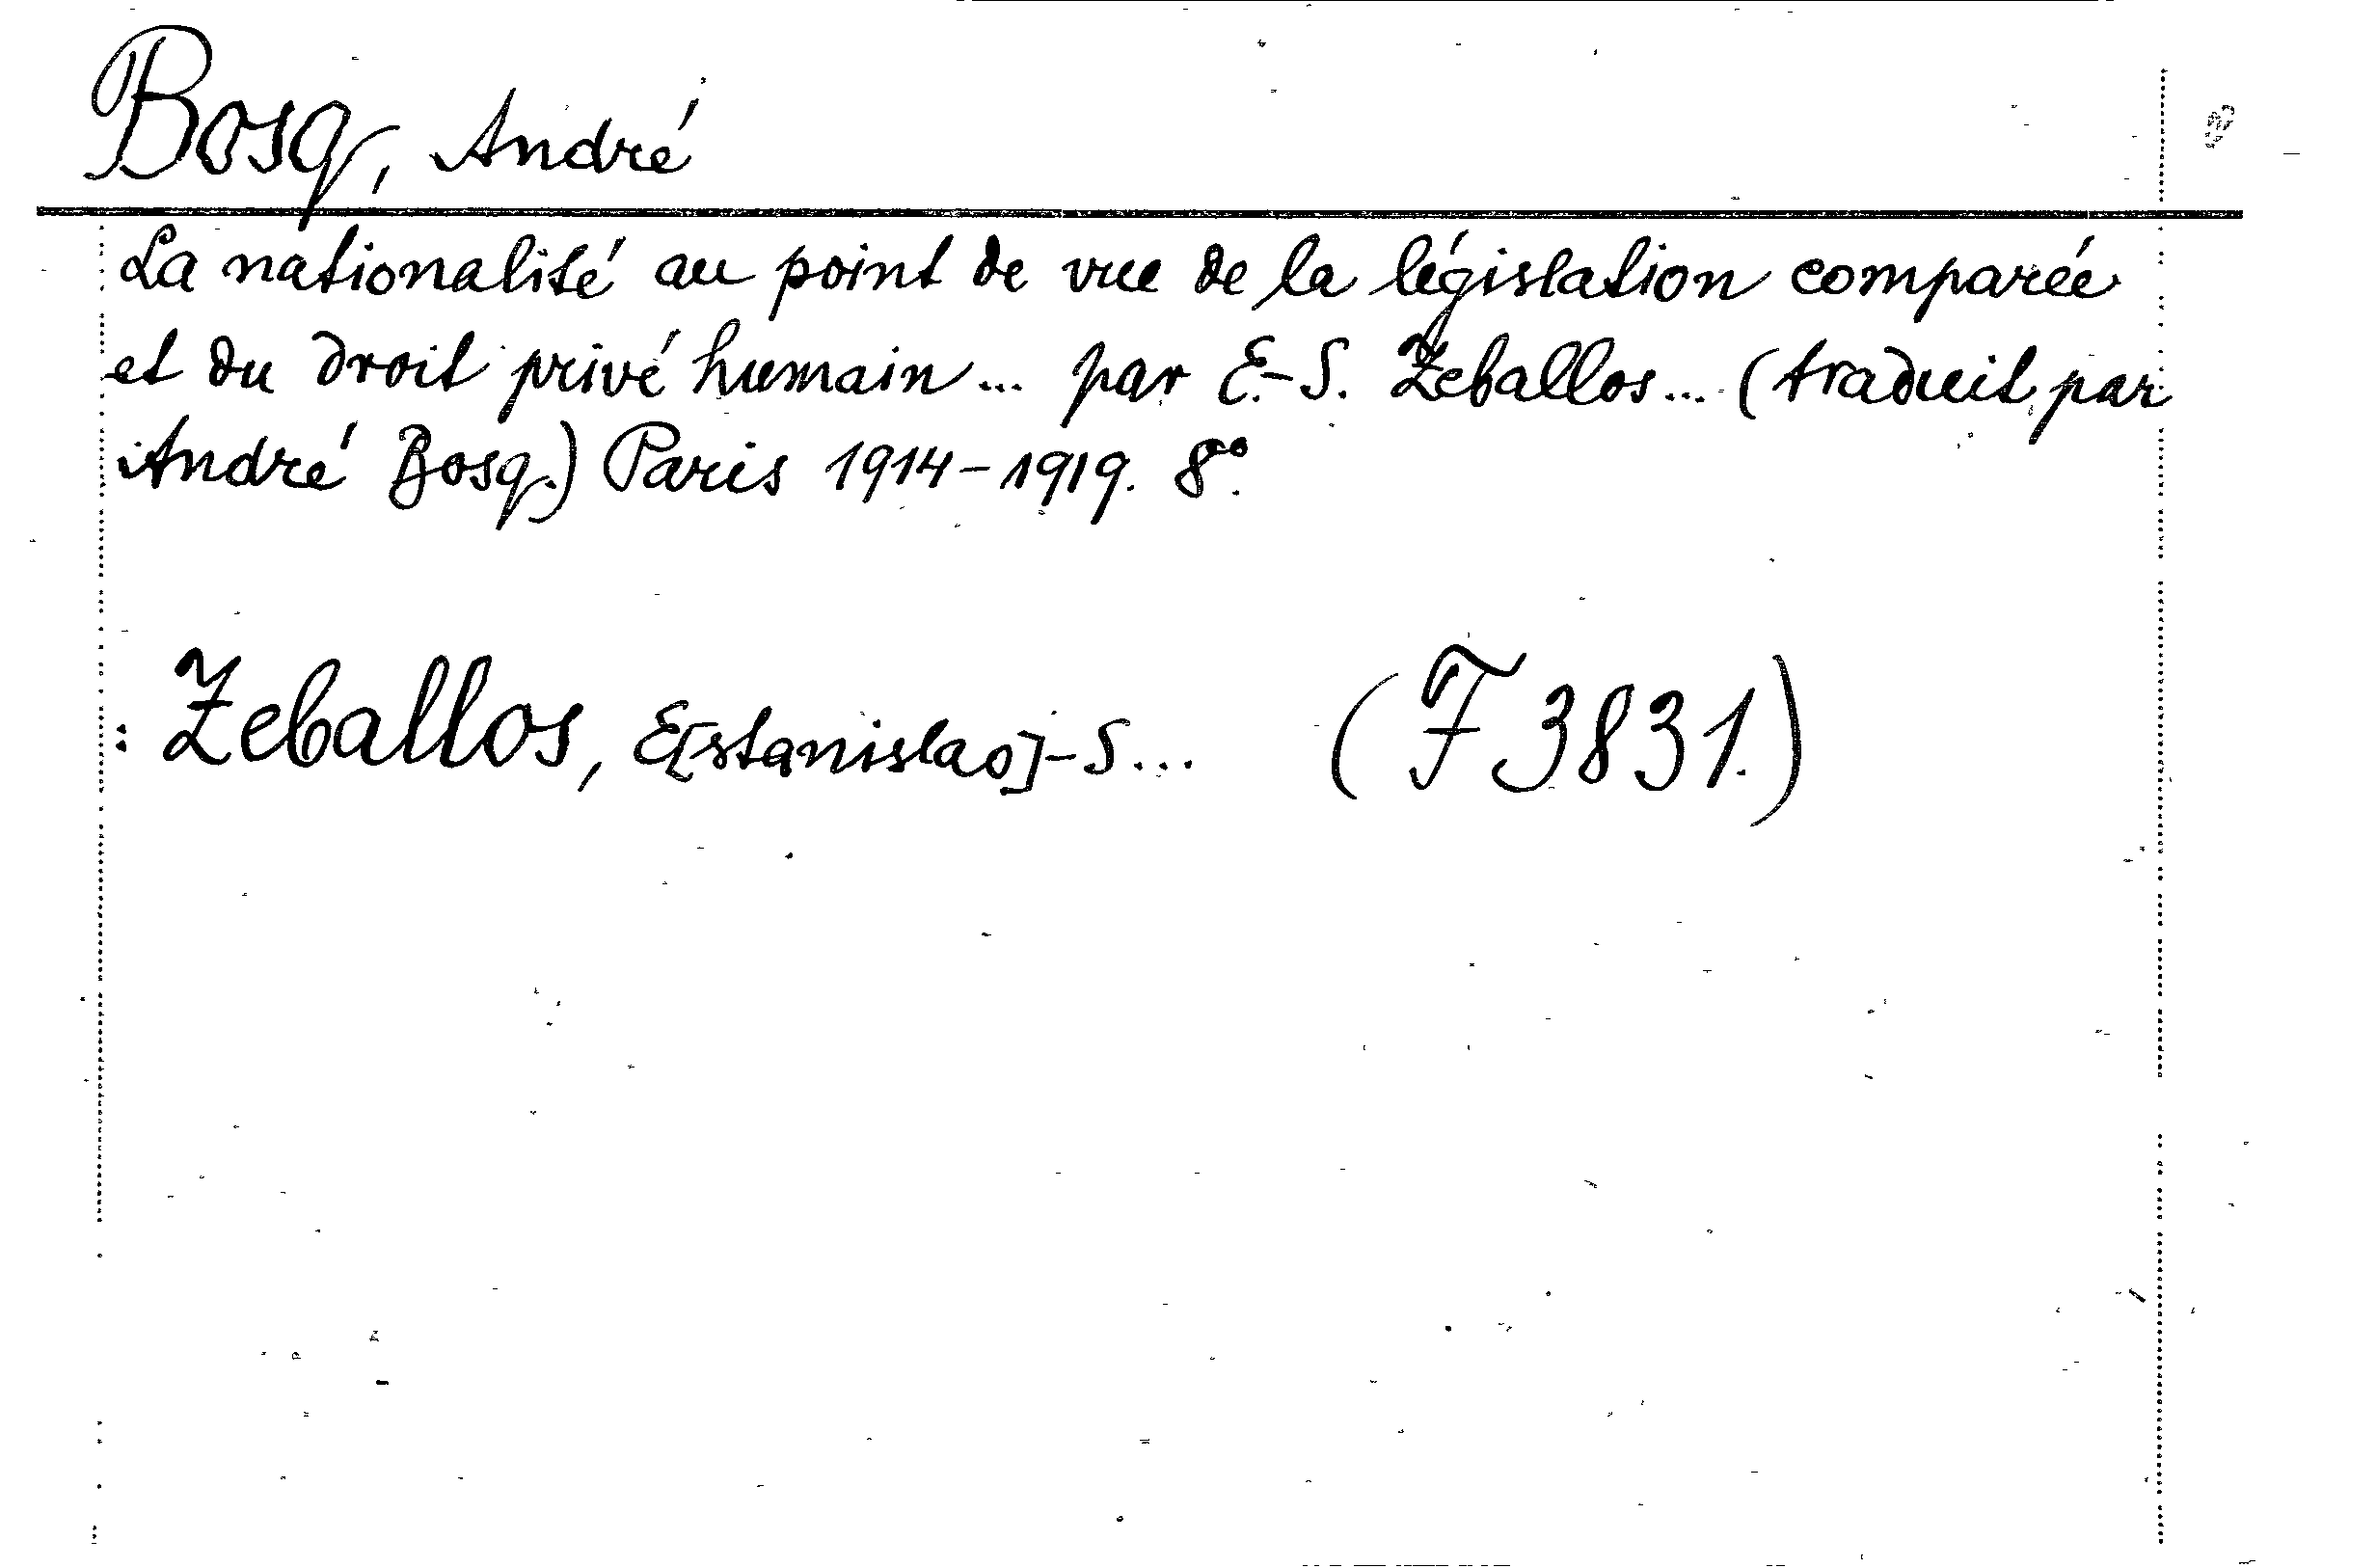 Bosq, André
La nationalité au point de vue de la législation comparée
et du droit privé humain... par E.-S. Zeballos... (traduit par
André Bosq.) Paris 1914-1919. 8°.
: Zeballos, E[stanislao]-S... (F 3831.)